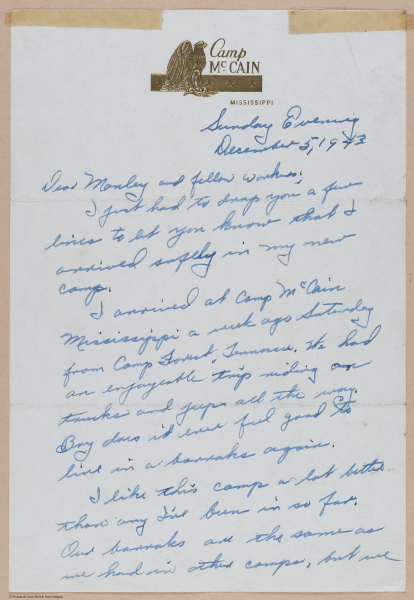 Camp
McCAIN
MISSISSIPPI
Sunday Evening
December 5, 1943
Dear Manley and fellow workers:
I just had to drop you a few
lines to let you know that I
arrived safely in my new
camp.
I arrived at Camp McCain
Mississippi a week ago Saturday
from Camp Forest, Tennessee. We had
an enjoyable trip riding on
trucks and jeeps all the way.
Boy does it ever feel good to
live in a barraks again.
I like this camp a lot better
than any I've been in so far.
Our barraks are the same as
we had in other camps, but we